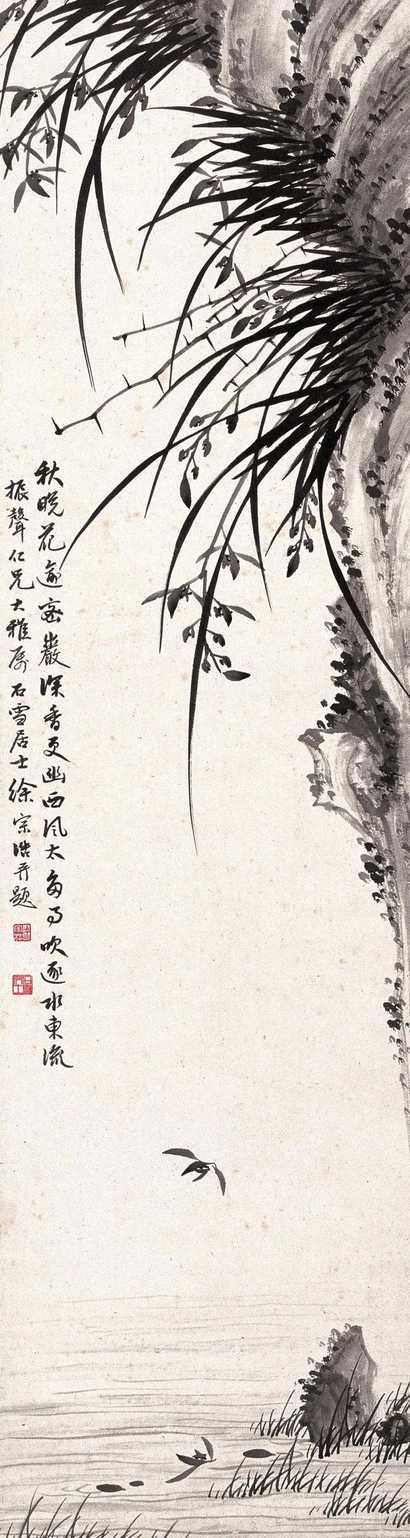 秋晚花逾密巖深香更幽西风太多事吹逐水東流
振聲仁兄大雅属 石雪居士徐宗浩并题